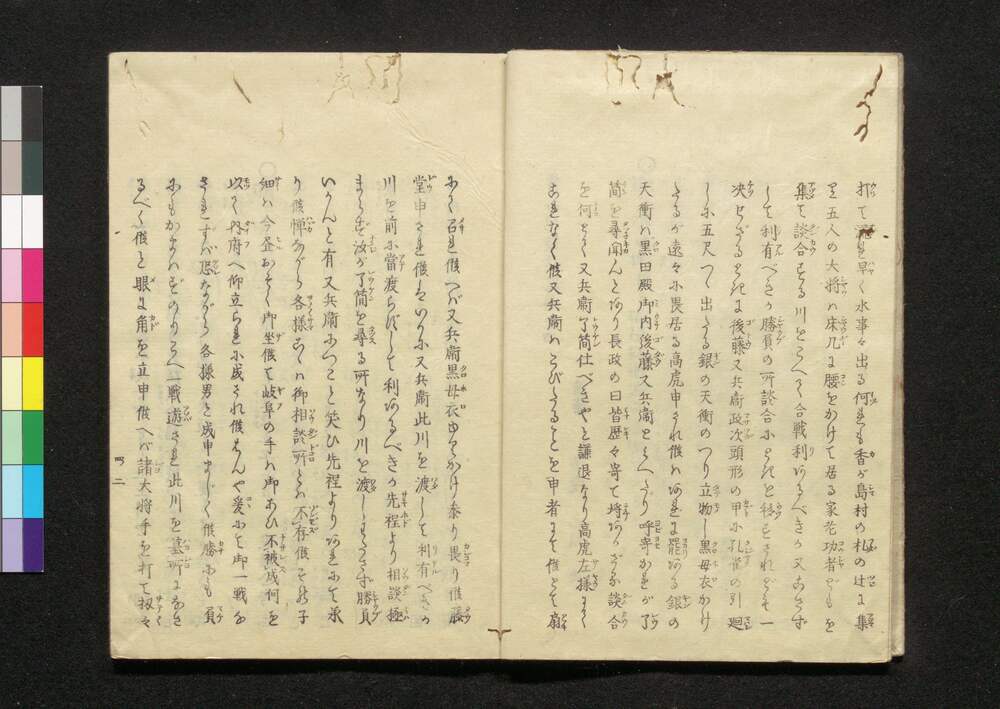 打て馬を早く水事々出る何れも香が島村の札の辻に集
り五人の大将は床几に腰をかけて居る家老功者どもを
集て談合する川をこへて合戦利あるべきか又こさず
して利有べきか勝負の所談合にそれを極まされどそ一
決せざるときに後藤又兵衛政次頭形の甲に孔雀の引廻
しに五尺つゝ出たる銀の天衝のつり立物し黒母衣かけ
たるが遠々に畏居る高虎申され候はあれに罷ある銀の
天衝は黒田殿御内後藤又兵衛とみへたり呼寄かれが了
簡を尋聞んとあり長政の曰皆歴々寄て埒あかざる談合
を何とて又兵衛了簡仕べきやと謙退なり高虎左様にて
これなく候又兵衛はこびたることを申者にて候とて扇
にて召れ候へば又兵衛黒母衣ゆらかけ参り畏り候藤
堂申され候はいかに又兵衛此川を渡して利有べきか
川を前に當渡らずして利あるべきか先程より相談極
まらず汝が了簡を尋る所なり川を渡しまさず勝負
いかんと有又兵衛につこと笑ひ先程よりあれにて承
り候憚ながら各様方には御相談所とは不存候その子
細は今奎おそく御坐候て岐阜の手は御あひ不被成何を
以て内府へ仰立られに成され候はんや爰にて御一戦を
されずば恐ながら各様男と成申まじく候勝にも負
にもかまはずのりこへ一戦遊され此川を墓所になさ
るべく候と眼に角を立申候へば諸大将手を打て扨々
四二